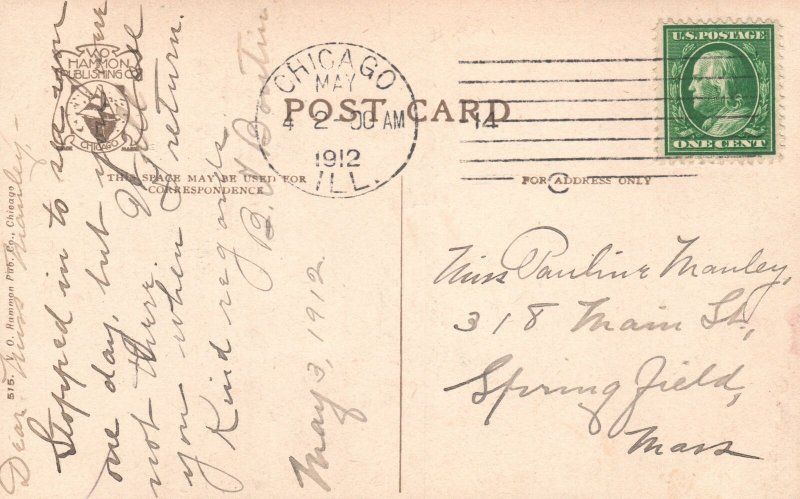 V.O.
HAMMON
PUBLISHING CO.
CHICAGO
POST CARD
THIS SPACE MAY BE USED FOR
CORRESPONDENCE
FOR ADDRESS ONLY
515. V. O. Hammon Pub. Co., Chicago
CHICAGO
MAY
4 2-00 AM
1912
ILL.
14
U.S. POSTAGE
ONE CENT
Dear Miss Manley,-
Stopped in to see you
one day, but you were
not there.
you when I return.
Kind regards
B. V. Boutin
May 3, 1912.
Miss Pauline Manley,
318 Main St.,
Springfield,
Mass